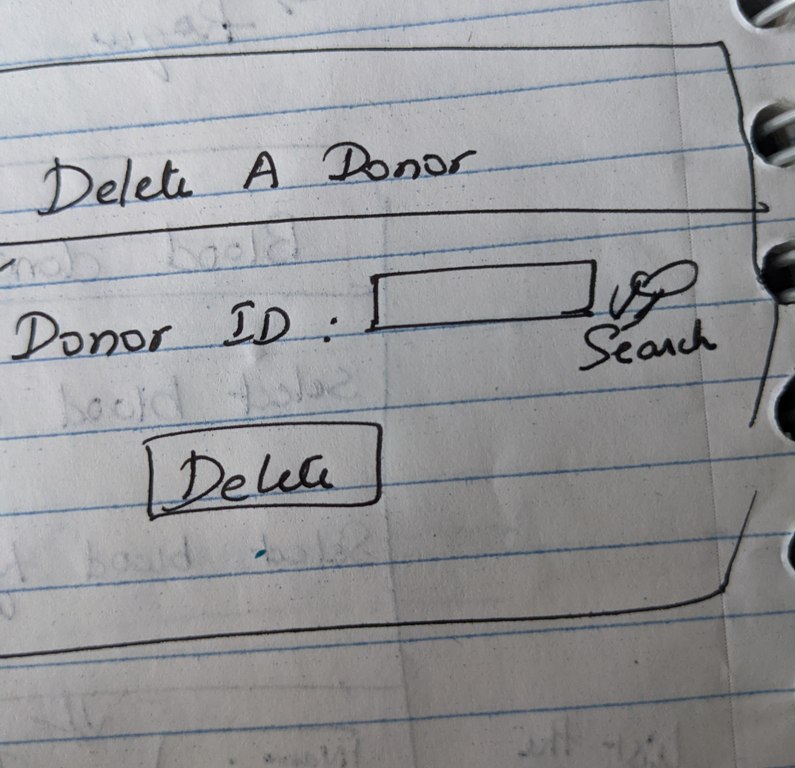 Delete A Donor
Donor ID :
Search
Delete